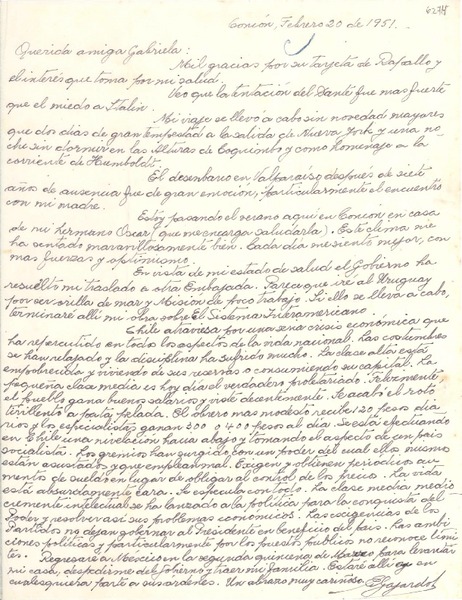 Concón, Febrero 20 de 1951.
Querida amiga Gabriela:
Mil gracias por su tarjeta de Rapallo y
el interés que toma por mi salud.
Veo que la tentación del Dante fue mas fuerte
que el miedo a Stalin.
Mi viaje se llevó a cabo sin novedad mayores
que dos dias de gran tempestad a la salida de Nueva York y una no-
che sin dormir en las alturas de Coquimbo y como homenaje a la
corriente de Humboldt.
El desembarco en Valparaiso después de siete
años de ausencia fue de gran emoción, particularmente el encuentro
con mi madre.
Estoy pasando el verano aquí en Concon en casa
de mi hermano Oscar (que me encarga saludarla). Este clima me
ha sentado maravillosamente bien. Cada día me siento mejor, con
mas fuerzas y optimismo.
En vista de mi estado de salud el Gobierno ha
resuelto mi traslado a otra Embajada. Parece que iré al Uruguay
por ser orilla de mar y Misión de poco trabajo. Si ello se lleva a cabo,
terminaré allí mi obra sobre El Sistema Interamericano.
Chile atraviesa por una seria crisis económica que
ha repercutido en todo los aspectos de la vida nacional. Las costumbres
se han relajado y la disciplina ha sufrido mucho. La clase alta está
empobrecida y viviendo de sus reservas o consumiendo su capital. La
pequeña clase media es hoy dia el verdadero proletariado. Felizmente
el pueblo gana buenos salarios y viste decentemente. Se acabó el roto
tirillento a pata pelada. El obrero mas modesto recibe 120 pesos dia-
rios y los especialistas ganan 300 o 400 pesos al día. Se está efectuando
en Chile una nivelación hacia abajo y tomando el aspecto de un pais
socialista. Los gremios han surgido con un poder del cual ellos mismos
están asustados y que emplean mal. Exigen y obtienen periodicos au-
mentos de sueldos en lugar de obligar al control de los precios. La vida
está absurdamente cara. Se especula con todo. La clase media medio-
cremente intelectual se ha lanzado a la politica para la conquista del
Poder y resolver así sus problemas económicos. Las exigencias de los
Partidos no dejan gobernar al Presidente en beneficio del pais. Las ambi-
ciones politicas y particularmente por los puestos publicos no reconoce limi-
tes.
Regresaré a Mexico en la segunda quincena de Marzo para levantar
mi casa, despedirme del Gobierno y traer mi familia. Estaré allí o en
cualesquiera parte a sus órdenes. Un abrazo muy cariñoso
EGajardo